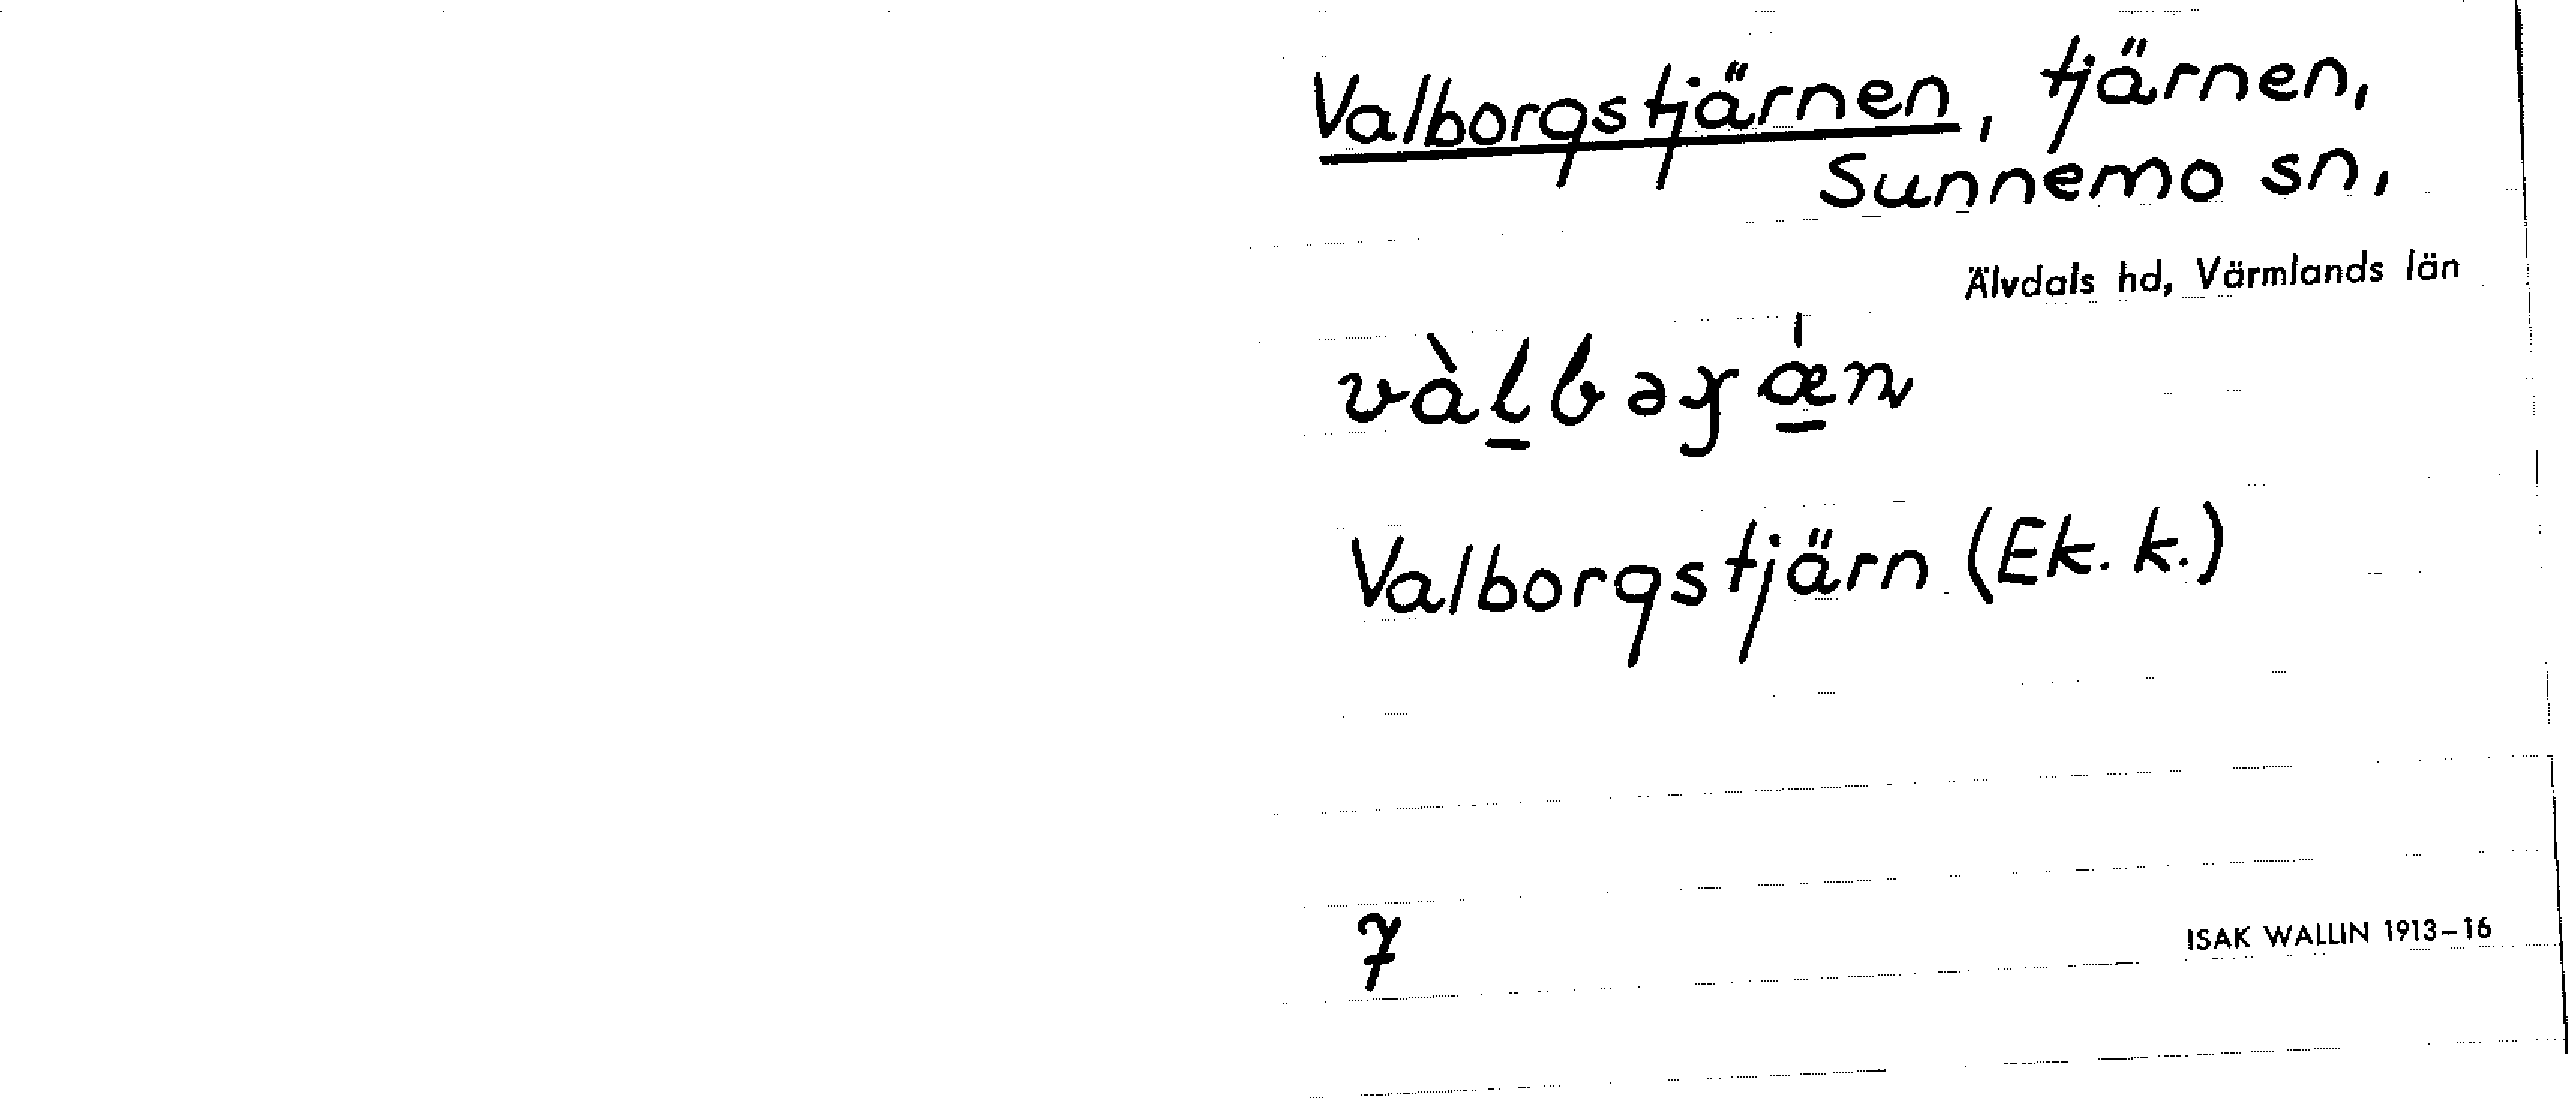 Valborgstjärnen, tjärnen,
Sunnemo sn,
Älvdals hd, Värmlands län
Valborgstjärn (Ek. k.)
7
ISAK WALLIN 1913–16